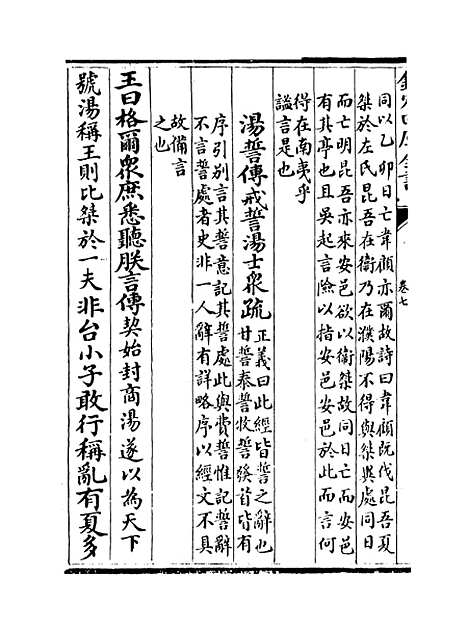 欽定四庫全書
卷七
同以乙卯日亡韋顧亦爾故詩曰韋顧既伐昆吾夏
桀於左氏昆吾在衛乃在濮陽不得與桀異處同日
而亡明昆吾亦來安邑欲以衛桀故同日亡而安邑
有其亭也且吳起言險以指安邑安邑於此而言何
得在南夷乎
謚言是也
湯誓傳戒誓湯士衆疏
正義曰此經皆誓之辭也
甘誓泰誓牧誓發首皆有
序引別言其誓意記其誓處此與費誓惟記誓辭
不言誓處者史非一人辭有詳略序以經文不具
故備言
之也
王曰格爾衆庶悉聽朕言傳契始封商湯遂以為天下
號湯稱王則比桀於一夫非台小子敢行稱亂有夏多